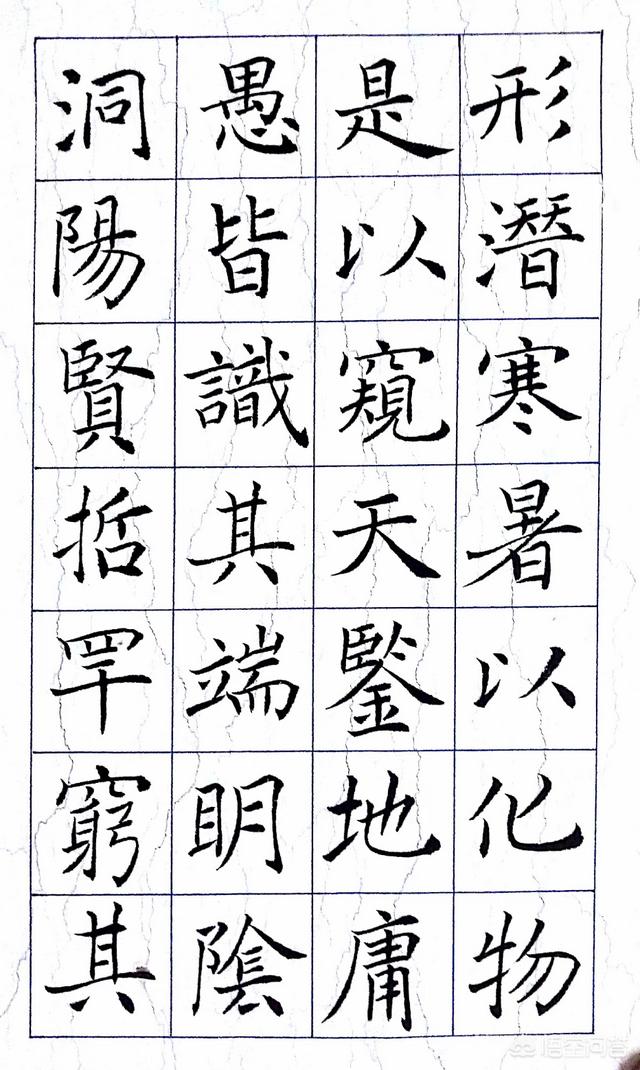 形潛寒暑以化物
是以窺天鑒地庸
愚皆識其端明陰
洞陽賢哲罕窮其
悟空问答